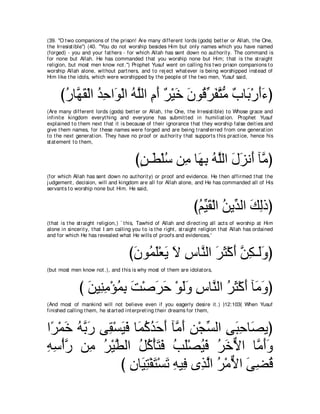 (39. "O two companions of the prison! Are many different lords (gods) better or Allah, the One,
the Irresistible'') (40. "You do not worship besides Him but only names which you have named
(forged) - you and your fathers - for which Allah has sent down no authority. The command is
for none but Allah. He has commanded that you worship none but Him; that is the straight
religion, but most men know not.'') Prophet Yusuf went on calling his two prison companions to
worship Allah alone, without partners, and to reject whatever is being worshipped instead of
Him like the idols, which were worshipped by the people of the two men, Yusuf said,
(أَءَرْبَابٌ مُّتَّفَرِّقُونَ خَيْرٌ أَمِ اللَّهُ الْوَاحِدُ الْقَهَّارُ)
(Are many different lords (gods) better or Allah, the One, the Irresistible) to Whose grace and
infinite kingdom everything and everyone has submitted in humiliation. Prophet Yusuf
explained to them next that it is because of their ignorance that they worship false deities and
give them names, for these names were forged and are being transferred from one generation
to the next generation. They have no proof or authority that supports this practice, hence his
statement to them,
(مَّآ أَنزَلَ اللَّهُ بِهَا مِن سُلْطَـنٍ)
(for which Allah has sent down no authority) or proof and evidence. He then affirmed that the
judgement, decision, will and kingdom are all for Allah alone, and He has commanded all of His
servants to worship none but Him. He said,
(ذَلِكَ الدِّينُ الْقَيِّمُ)
(that is the straight religion,) `this, Tawhid of Allah and directing all acts of worship at Him
alone in sincerity, that I am calling you to is the right, straight religion that Allah has ordained
and for which He has revealed what He wills of proofs and evidences,'
(وَلَـكِنَّ أَكْثَرَ النَّاسِ لاَ يَعْلَمُونَ)
(but most men know not.), and this is why most of them are idolators,
(وَمَآ أَكْثَرُ النَّاسِ وَلَوْ حَرَصْتَ بِمُؤْمِنِينَ )
(And most of mankind will not believe even if you eagerly desire it.) (12:103) When Yusuf
finished calling them, he started interpreting their dreams for them,
(يصَاحِبَىِ السِّجْنِ أَمَّآ أَحَدُكُمَا فَيَسْقِى رَبَّهُ خَمْرًا
وَأَمَّا الاٌّخَرُ فَيُصْلَبُ فَتَأْكُلُ الطَّيْرُ مِن رَّأْسِهِ
قُضِىَ الاٌّمْرُ الَّذِى فِيهِ تَسْتَفْتِيَانِ )